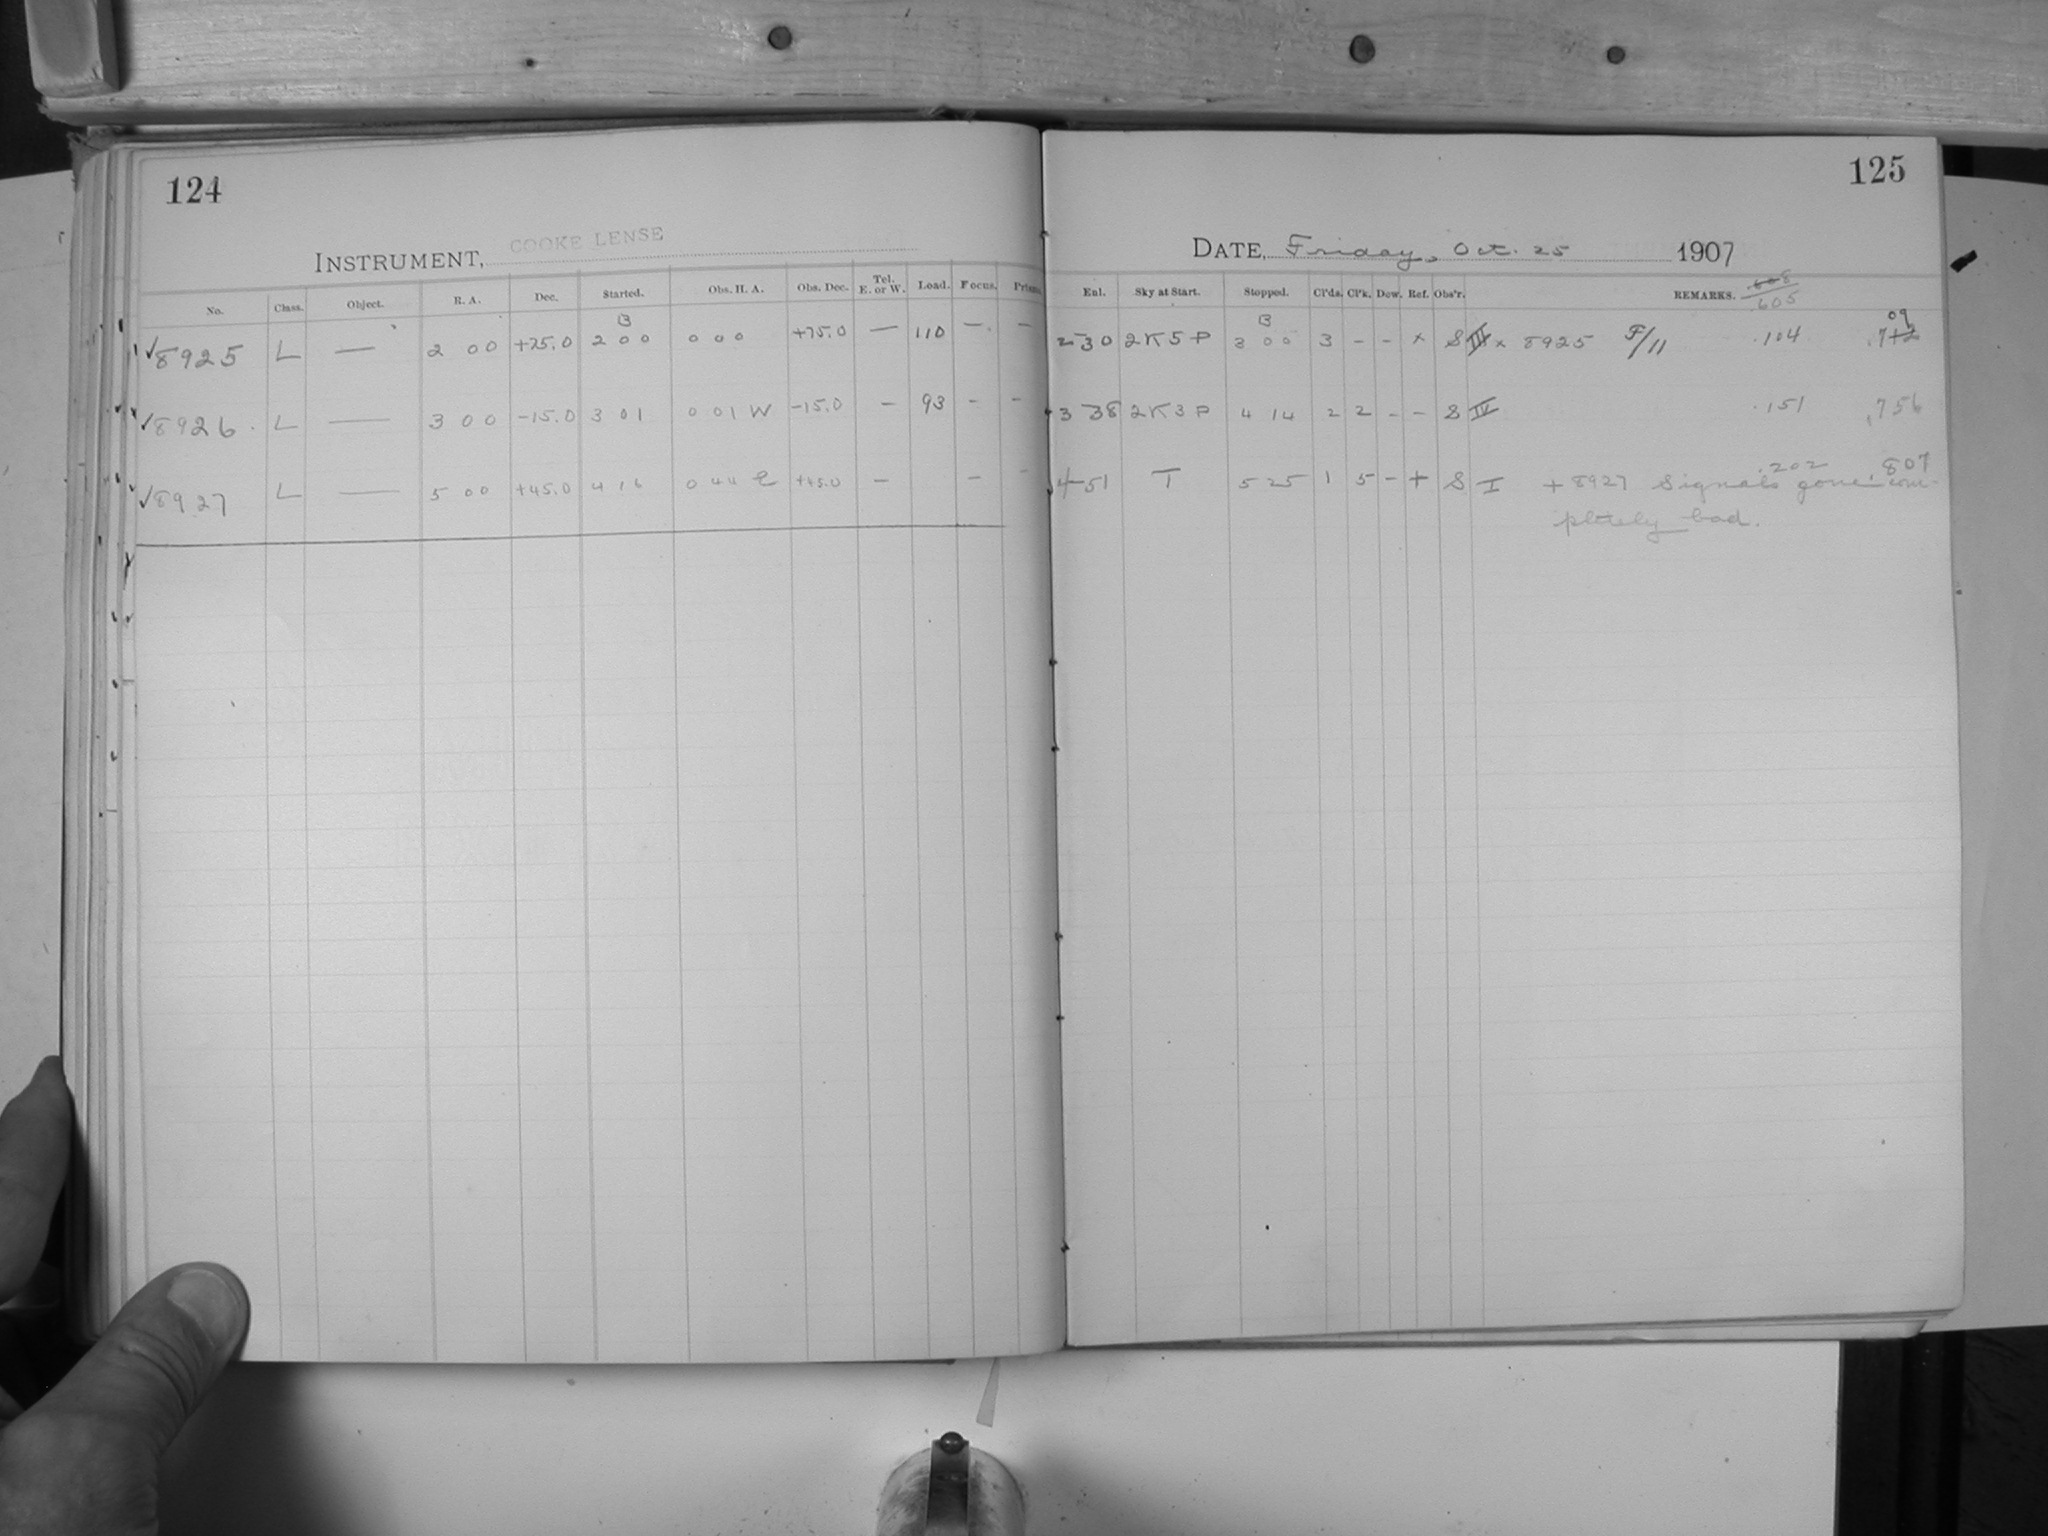 124
INSTRUMENT, COOKE LENSE
No. Class. Object. R. A. Dec. Started. Obs. H. A. Obs. Dec. Tel. E. or W. Load. Focus. Prism.
B
√8925 L — 2 00 +75.0 2 00 0 00 +75.0 — 110 — —
√8926 L — 3 00 -15.0 3 01 0 01 W -15.0 — 93 - -
√8927 L — 5 00 +45.0 4 16 0 44 E +45.0 — - -
125
DATE, Friday, Oct. 25 1907
Enl. Sky at Start. Stopped. Cl'ds. Cl'k. Dew. Ref. Obs'r. REMARKS. 608
605
B 09
2 30 2K5P 3 00 3 - - × S III × 8925 F/11 .104 .712
3 38 2K3P 4 14 2 2 - - S IV .151 .756
4 51 T 5 25 1 5 - + S I + 8927 Signals gone com-
.202 .807
pletely bad.